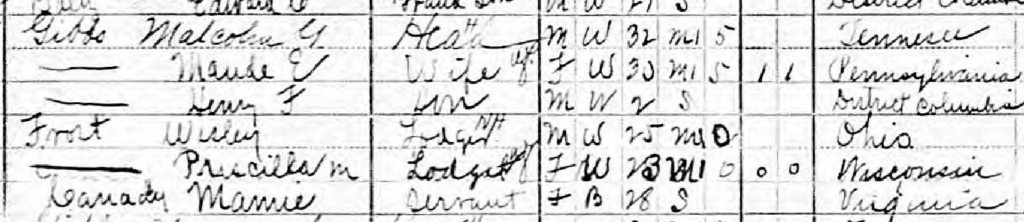 Edward M W 27 S
Gibbs Malcolm G Head M W 32 M1 5 Tennessee
— Maude E Wife F W 30 M1 5 1 1 Pennsylvania
— Henry F Son M W 2 S District Columbia
Frost Wesley Lodger M W 25 M1 0 Ohio
— Priscilla M Lodger F W 23 M1 0 0 0 Wisconsin
Canady Mamie Servant F B 28 S Virginia